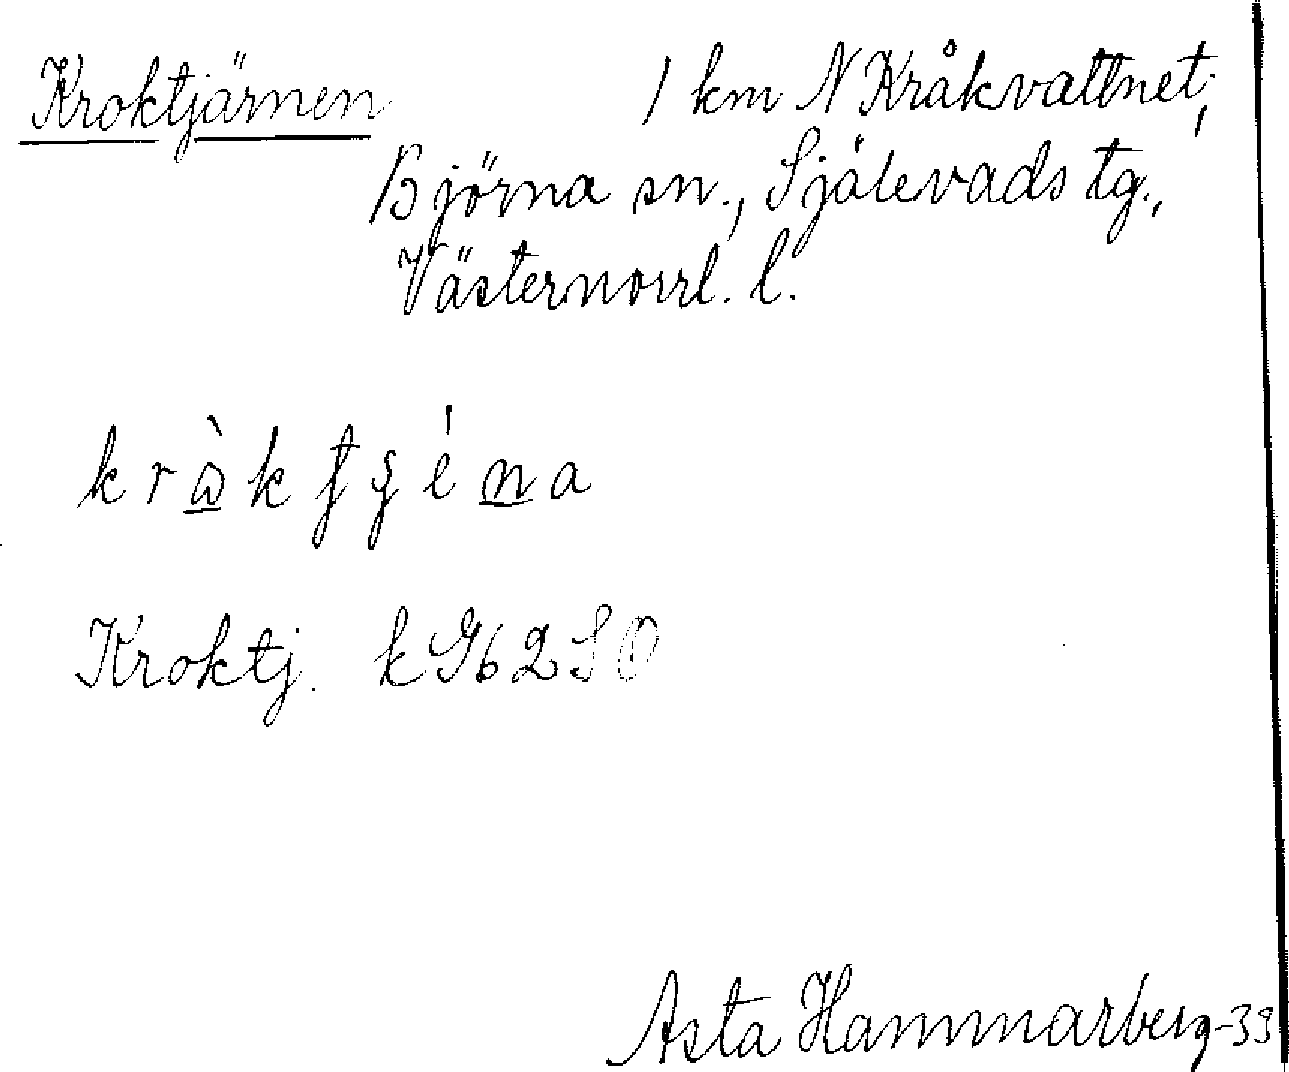 Kroktjärnen 1 km N Kråkvattnet,
Björna sn., Själevads tg.,
Västernorrl. l.
Kroktj. k G62SO
Asta Hammarberg-39